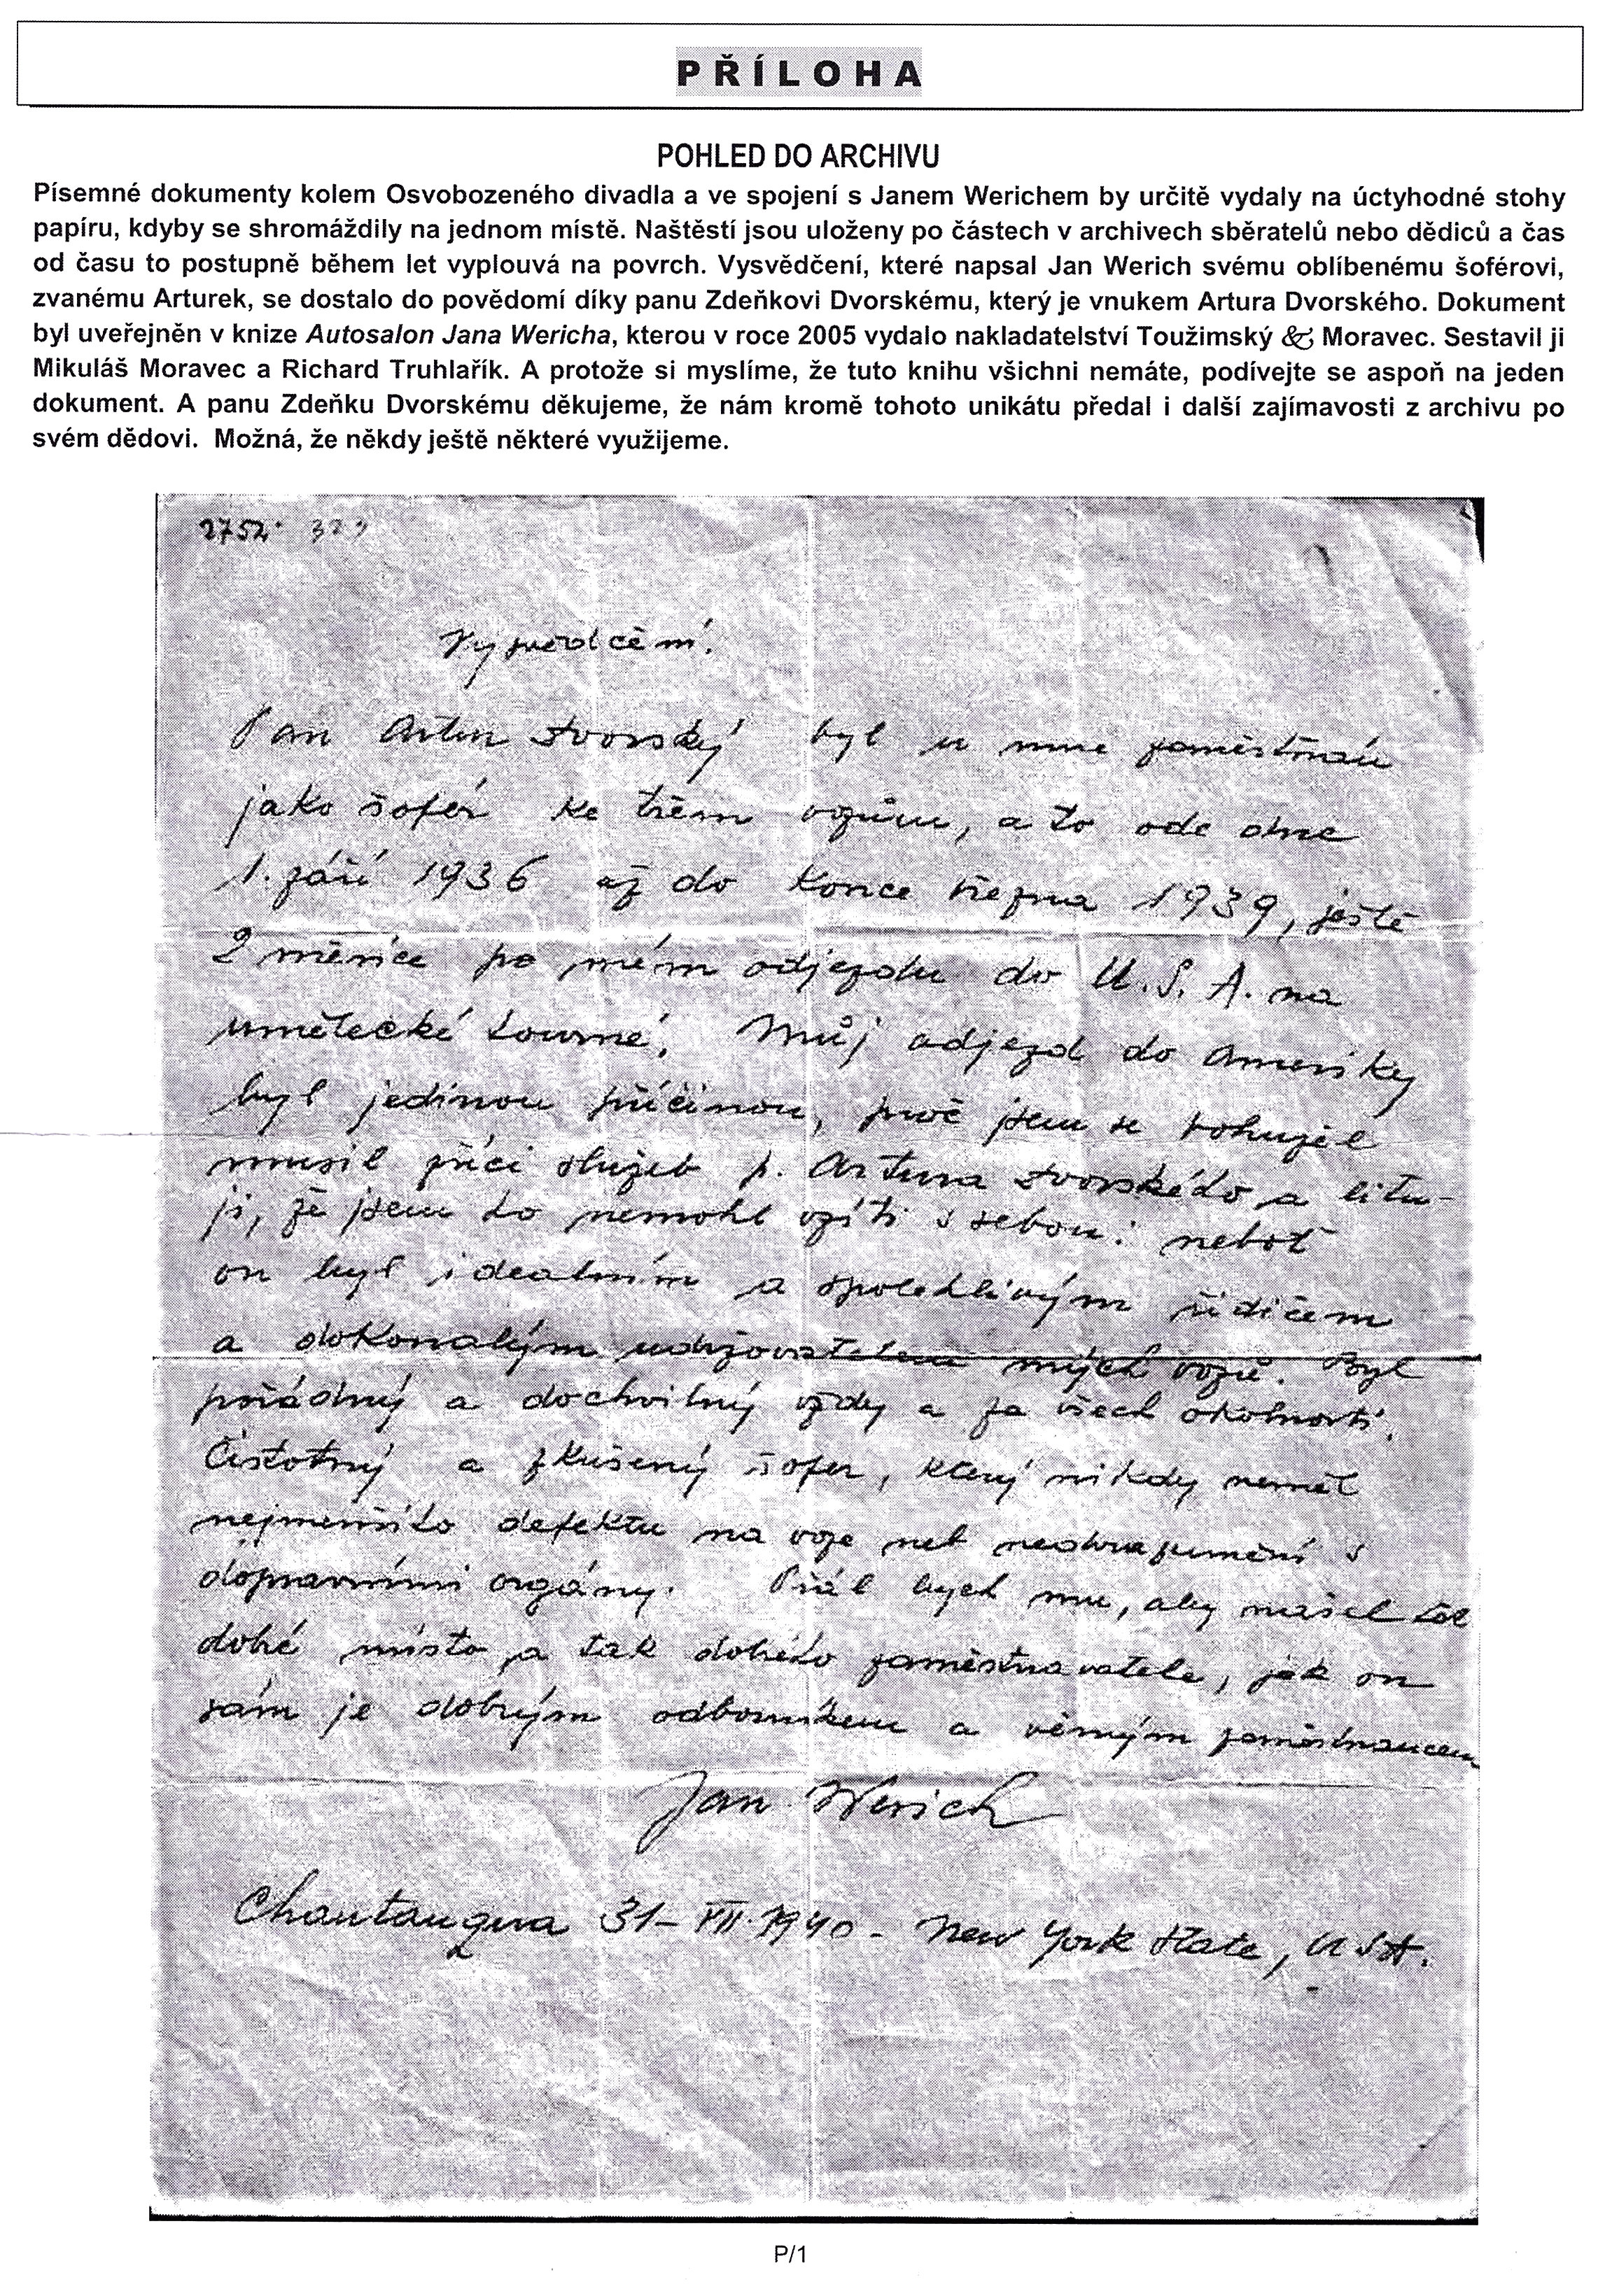 PŘÍLOHA
POHLED DO ARCHIVU
Písemné dokumenty kolem Osvobozeného divadla a ve spojení s Janem Werichem by určitě vydaly na úctyhodné stohy
papíru, kdyby se shromáždily na jednom místě. Naštěstí jsou uloženy po částech v archivech sběratelů nebo dědiců a čas
od času to postupně během let vyplouvá na povrch. Vysvědčení, které napsal Jan Werich svému oblíbenému šoférovi,
zvanému Arturek, se dostalo do povědomí díky panu Zdeňkovi Dvorskému, který je vnukem Artura Dvorského. Dokument
byl uveřejněn v knize Autosalon Jana Wericha, kterou v roce 2005 vydalo nakladatelství Toužimský & Moravec. Sestavil ji
Mikuláš Moravec a Richard Truhlařík. A protože si myslíme, že tuto knihu všichni nemáte, podívejte se aspoň na jeden
dokument. A panu Zdeňku Dvorskému děkujeme, že nám kromě tohoto unikátu předal i další zajímavosti z archivu po
svém dědovi. Možná, že někdy ještě některé využijeme.
2752
Vysvědčení.
Pan Artur Dvorský byl u mne zaměstnán
jako šofér ke třem vozům, a to ode dne
1. září 1936 až do konce března 1939, ještě
2 měsíce po mém odjezdu do U.S.A. na
umělecké tourné. Můj odjezd do Ameriky
byl jedinou příčinou, proč jsem se bohužel
musil zříci služeb p. Artura Dvorského a litu-
ji, že jsem ho nemohl vzíti s sebou: neboť
on byl idealním a spolehlivým řidičem
a dokonalým udržovatelem mých vozů. Byl
pořádný a dochvilný vždy a za všech okolností.
Čistotný a zkušený šofer, který nikdy neměl
nejmenšího defektu na voze neb nedorozumění s
dopravními orgány. Přál bych mu, aby našel tak
dobré místo a tak dobrého zaměstnavatele, jak on
sám je dobrým odborníkem a věrným zaměstnancem
Jan Werich
Chautauqua 31-VII.1940 - New York State, USA.
P/1